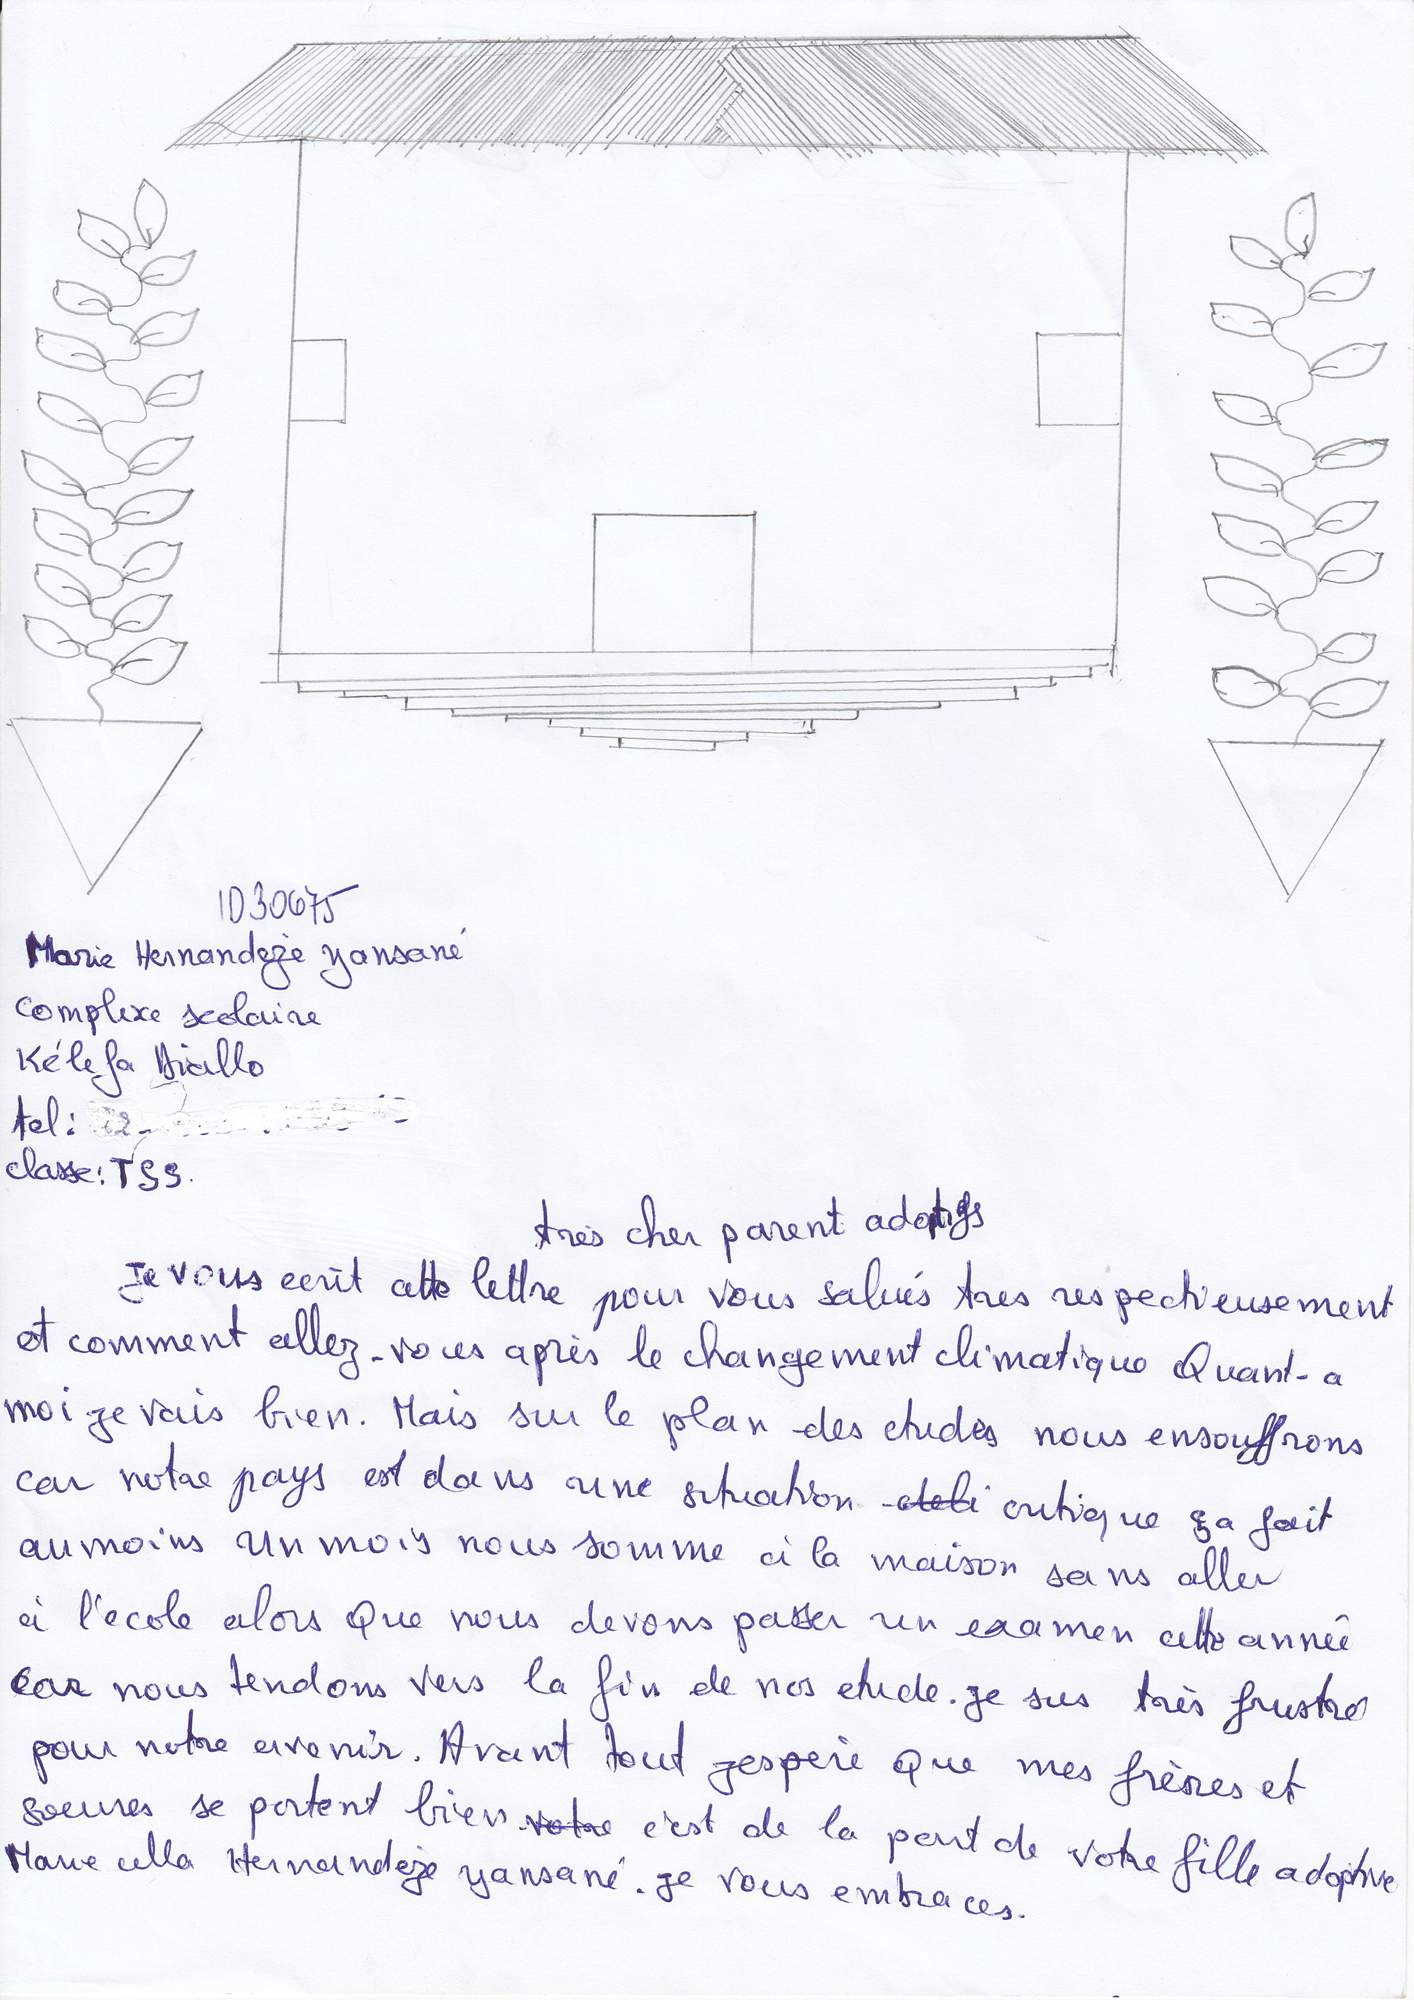 ID30675
Marie Hernandezie yansané
complexe scolaire
Kélefa Diallo
tel:
classe: TSS.
très cher parent adoptifs
Je vous ecrit cette lettre pour vous salués tres respectieusement
et comment allez-vous après le changement climatique Quant-a
moi je vais bien. Mais sur le plan des etudes nous ensouffrons
car notre pays est dans une situation critique ça fait
aumoins un mois nous somme à la maison sans aller
à l'ecole alors Que nous devons passer un examen cette année
car nous tendons vers la fin de nos etude. je sus très frustré
pour notre avenir. Avant tout jesperè Que mes frères et
soeures se portent bien c'est de la part de votre fille adoptive
Marie cella Hernandezie yansané. je vous embraces.